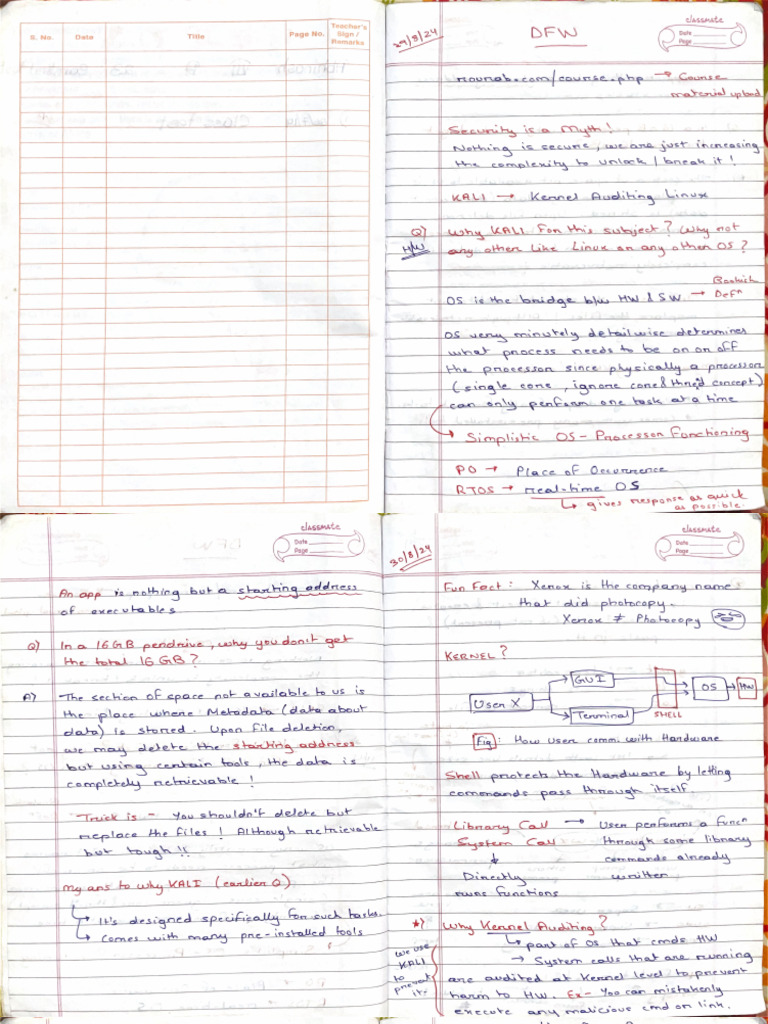 S. No. Date Title Page No. Teacher's Sign / Remarks
classmate
Date
Page
29/8/24
DFW
nounab.com/course.php → Course
material upload
Security is a Myth!
Nothing is secure, we are just increasing
the complexity to unlock / break it!
KALI → Kernel Auditing Linux
Q) Why KALI for this subject? Why not
H/W any other like Linux or any other OS?
OS is the bridge b/w HW & SW → Bookish Defⁿ
OS very minutely detailwise determines
what process needs to be on or off
the processor since physically a processor
(single core, ignore core & thread concept)
can only perform one task at a time
→ Simplistic OS - Processor Functioning
PO → Place of Occurrence
RTOS → real-time OS
↳ gives response as quick
as possible.
classmate
Date
Page
An app is nothing but a starting address
of executables
Q) In a 16GB pendrive, why you don't get
the total 16 GB?
A) The section of space not available to us is
the place where Metadata (data about
data) is stored. Upon file deletion,
we may delete the starting address
but using certain tools, the data is
completely retrievable!
Trick is - You shouldn't delete but
replace the files! Although retrievable
but tough!!
My ans to why KALI (earlier Q)
↳ It's designed specifically for such tasks.
↳ Comes with many pre-installed tools
classmate
Date
Page
30/8/24
Fun Fact: Xerox is the company name
that did photocopy.
Xerox ≠ Photocopy
KERNEL?
User X
GUI
Terminal
SHELL
OS
HW
Fig: How user comm. with Hardware
Shell protects the Hardware by letting
commands pass through itself.
Library Call → User performs a funcⁿ
System Call through some library
↓ commands already
Directly written
runs functions
*) Why Kernel Auditing?
↳ part of OS that cmds HW
→ System calls that are running
are audited at Kernel level to prevent
harm to HW. Ex- You can mistakenly
execute any malicious cmd on link.
We use
KALI
to
prevent
it.